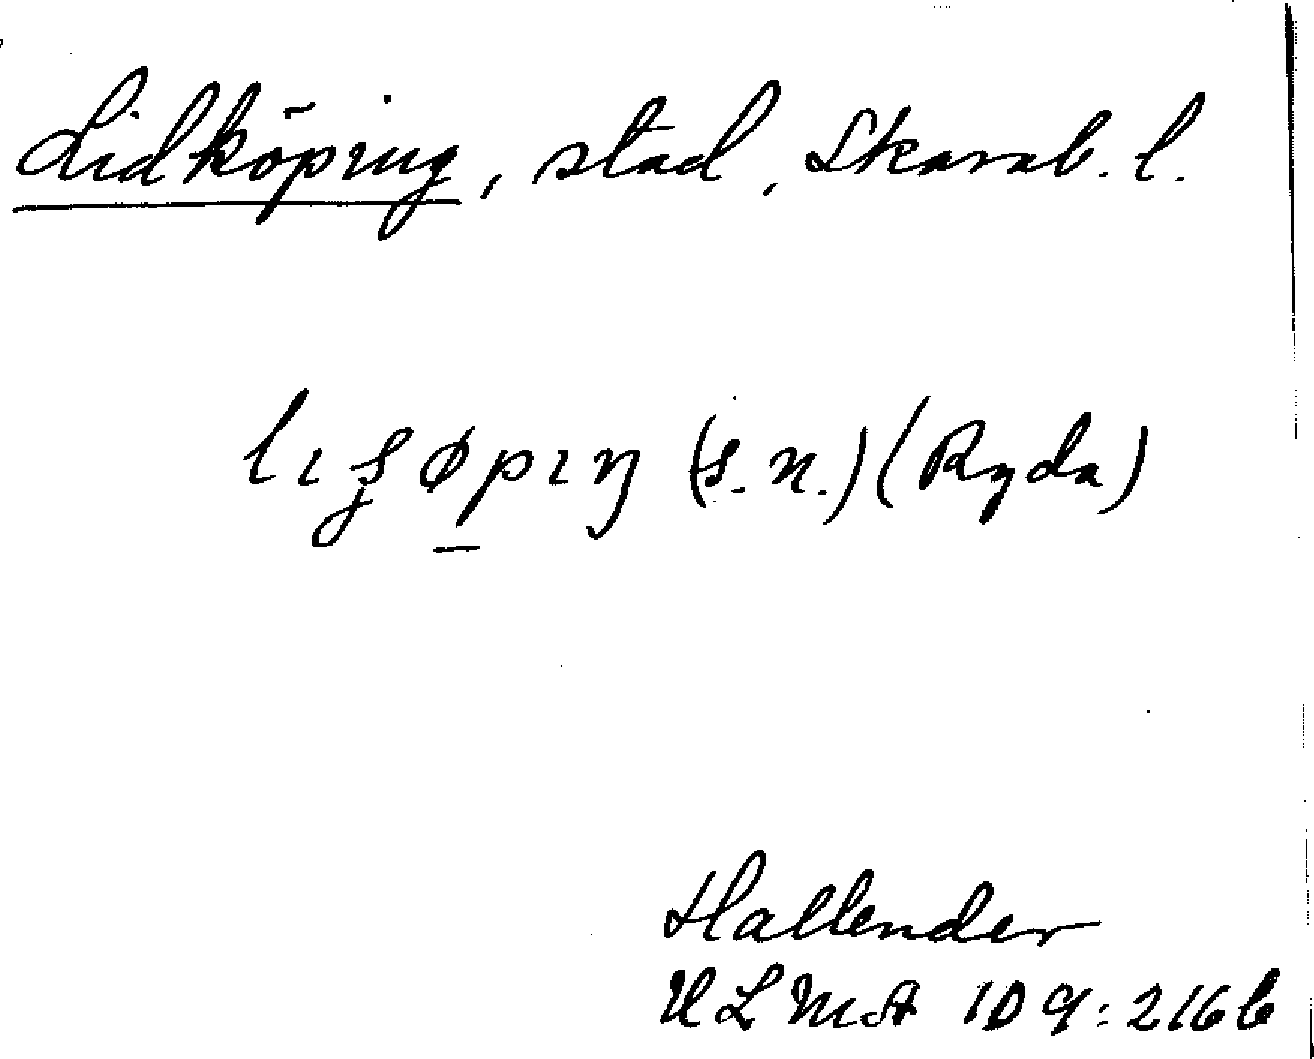 Lidköping, stad, Skarab. l.
(s.n.) (Ryda)
Hallender
ULMA ID 9:216b